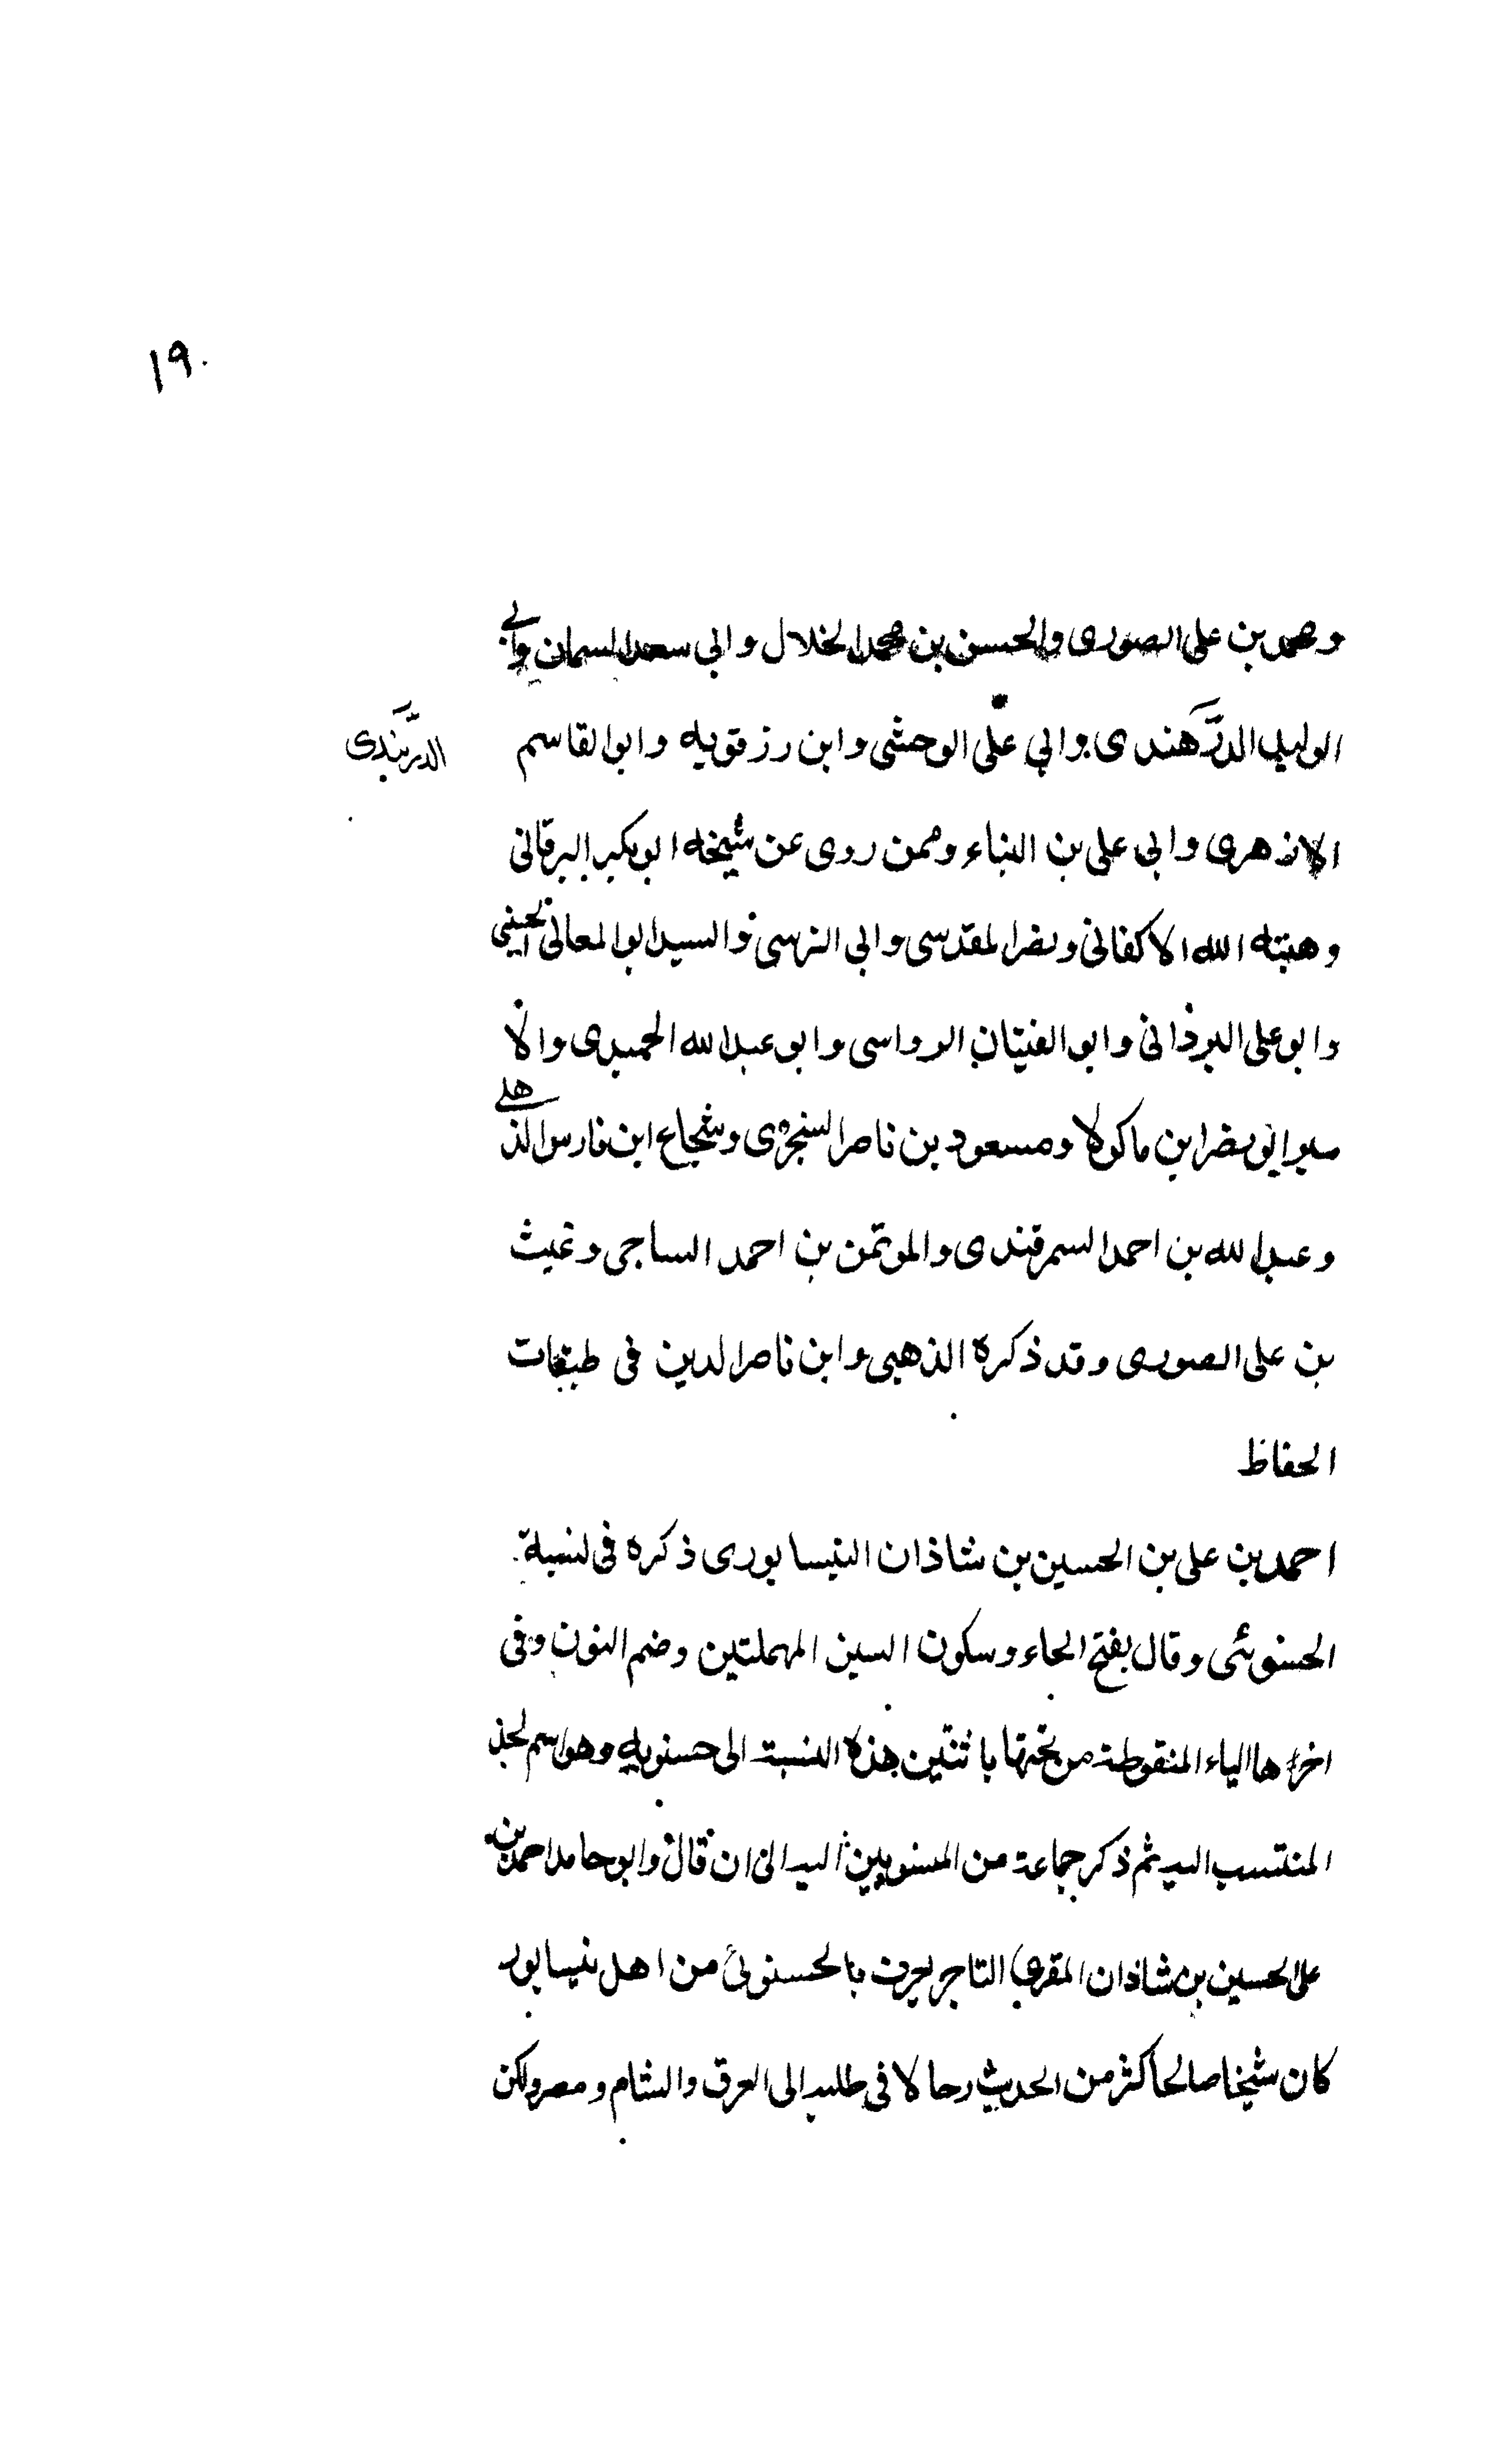 ١٩٠
ومحمد بن على الصورى والحسن بن محمد الخلال وابي سعد السمان وابي
الوليد الدرهندى وابي على الوحشى وابن رزقويه وابوالقاسم
الدربندى
الازهرى وابى على بن البناء وممن روى عن شيخه ابوبكر البرقانى
وهبته الله الاكفانى ونصرالمقدسى وابي النرسى والسيد ابوالمعالى الحسينى
وابوعلى البرذانى وابوالفتيان الرواسى وابوعبد الله الحميدى والا
ميرابونصرابن ماكولا ومسعود بن ناصرالسنجزى وشجاع ابن فارس الذهلے
وعبدالله بن احمدالسمرقندى والموتمن بن احمد الساجى وغيث
بن على الصورى وقد ذكره الذهبى وابن ناصرالدين فى طبقات
الحفاظ
احمد بن على بن الحسين بن شاذان النيسابورى ذكره فى نسبة
الحسنوئى وقال بفتح الحاء وسكون السين المهملتين وضم النون وفى
اخرها الياء المنقوطة من تحتها باثنتين هذه النسبة الى حسنويه وهواسم لجد
المنتسب اليه ثم ذكر جماعة من المنسوبين اليه الى ان قال وابوحامد احمد بن
على الحسين بن شاذان المقرى التاجر يعرف بالحسنوئ من اهل نيسابور
كان شيخاصالحا اكثر من الحديث رحالا فى طلبه الى العرق والشام ومصر ولكن